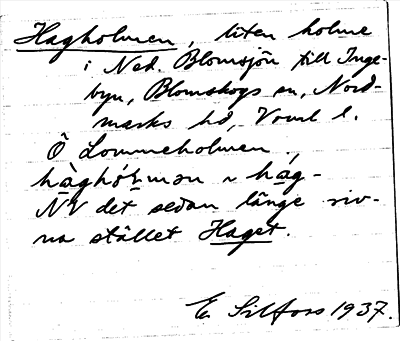 Hagholmen, liten holme
i Ned. Blomsjön till Inge-
byn, Blomskogs sn, Nord-
marks hd, Vrml l.
Ö Lommeholmen,
hàghól̥mən ~ hàg-
NV det sedan länge riv-
na stället Haget.
E. Silfors 1937.